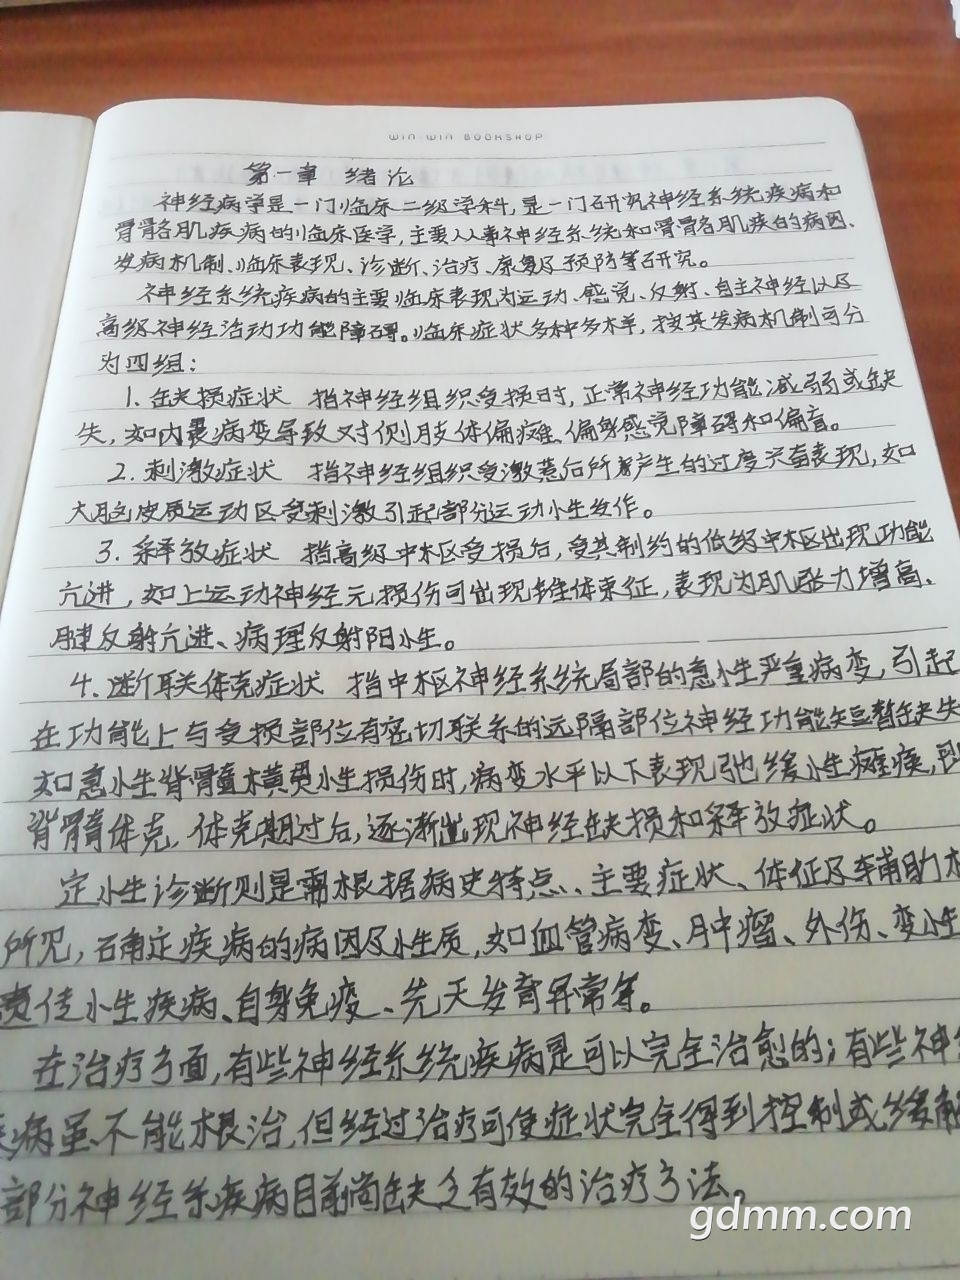 WIN WIN BOOKSHOP
第一章 绪论
神经病学是一门临床二级学科,是一门研究神经系统疾病和
骨骼肌疾病的临床医学,主要从事神经系统和骨骼肌疾的病因、
发病机制、临床表现、诊断、治疗、康复及预防等研究。
神经系统疾病的主要临床表现为运动、感觉、反射、自主神经以及
高级神经活动功能障碍。临床症状多种多样,按其发病机制可分
为四组:
1. 缺损症状 指神经组织受损时,正常神经功能减弱或缺
失,如内囊病变导致对侧肢体偏瘫、偏身感觉障碍和偏盲。
2. 刺激症状 指神经组织受激惹后所产生的过度兴奋表现,如
大脑皮质运动区受刺激引起部分运动性发作。
3. 释放症状 指高级中枢受损后,受其制约的低级中枢出现功能
亢进,如上运动神经元损伤可出现锥体束征,表现为肌张力增高、
腱反射亢进、病理反射阳性。
4. 断联休克症状 指中枢神经系统局部的急性严重病变,引起
在功能上与受损部位有密切联系的远隔部位神经功能短暂缺失
如急性脊髓横贯性损伤时,病变水平以下表现弛缓性瘫痪,即
脊髓休克,休克期过后,逐渐出现神经缺损和释放症状。
定性诊断则是需根据病史特点、主要症状、体征及辅助检
所见,确定疾病的病因及性质,如血管病变、肿瘤、外伤、变性
遗传性疾病、自身免疫、先天发育异常等。
在治疗方面,有些神经系统疾病是可以完全治愈的;有些神经
疾病虽不能根治,但经过治疗可使症状完全得到控制或缓解
部分神经系疾病目前尚缺乏有效的治疗方法。
gdmm.com